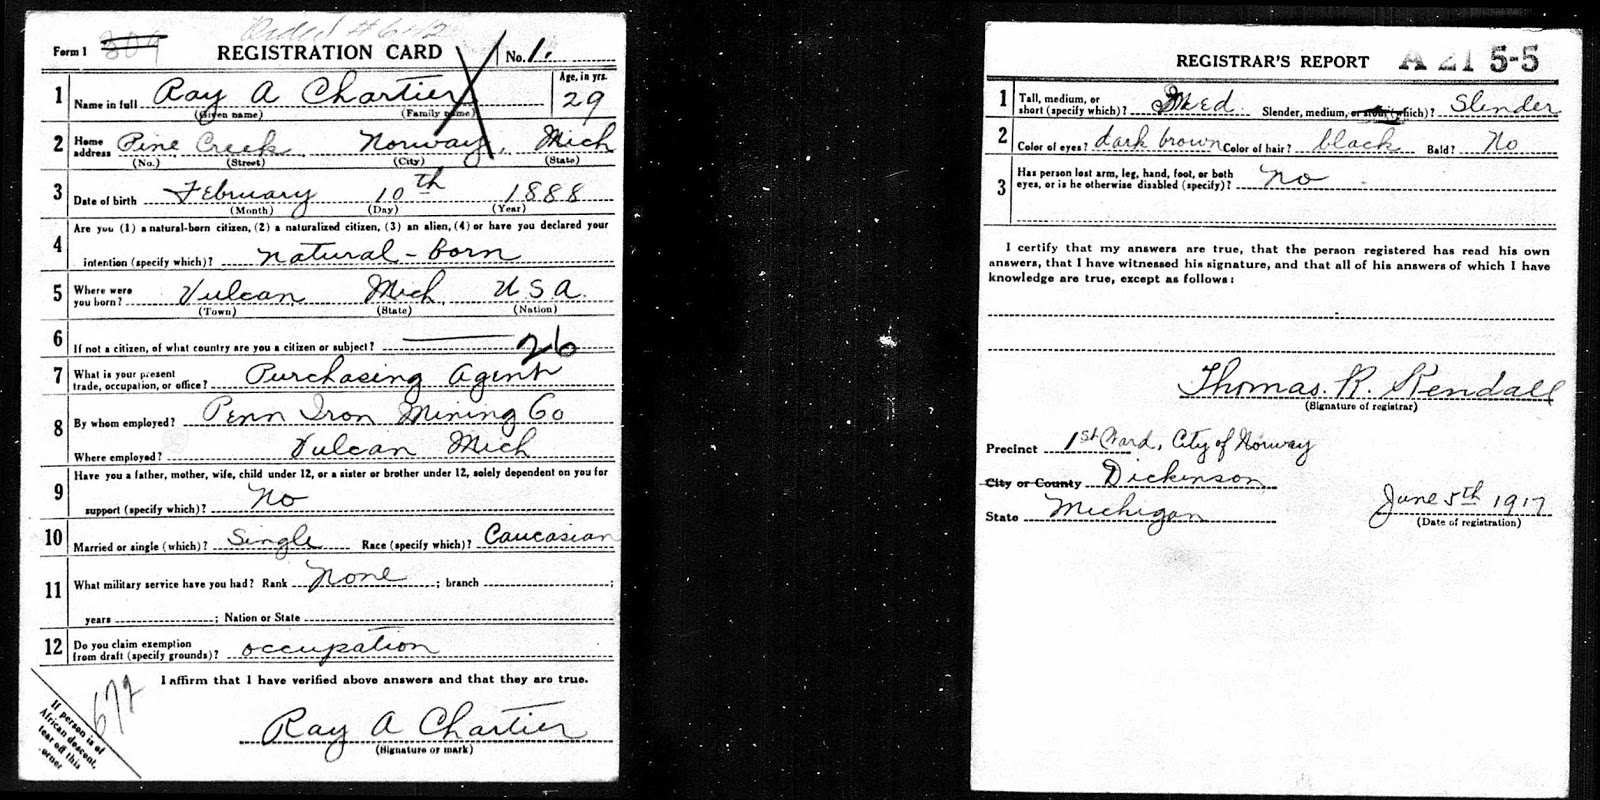 Order #642
Form 1 309 REGISTRATION CARD No. 1.
1 Name in full Ray A Chartier Age, in yrs. 29
(Given name) (Family name)
2 Home address Pine Creek Norway, Mich
(No.) (Street) (City) (State)
3 Date of birth February 10th 1888
(Month) (Day) (Year)
4 Are you (1) a natural-born citizen, (2) a naturalized citizen, (3) an alien, (4) or have you declared your
intention (specify which)? natural-born
5 Where were you born? Vulcan Mich USA
(Town) (State) (Nation)
6 If not a citizen, of what country are you a citizen or subject? 26
7 What is your present trade, occupation, or office? Purchasing Agent
8 By whom employed? Penn Iron Mining Co
Where employed? Vulcan Mich
9 Have you a father, mother, wife, child under 12, or a sister or brother under 12, solely dependent on you for
support (specify which)? No
10 Married or single (which)? Single Race (specify which)? Caucasian
11 What military service have you had? Rank None ; branch ;
years ; Nation or State
12 Do you claim exemption from draft (specify grounds)? occupation
I affirm that I have verified above answers and that they are true.
672
If person is of
African descent,
tear off this
corner
Ray A Chartier
(Signature or mark)
REGISTRAR'S REPORT A 21 5-5
1 Tall, medium, or short (specify which)? Med. Slender, medium, or stout (which)? Slender
2 Color of eyes? dark brown Color of hair? black Bald? No
3 Has person lost arm, leg, hand, foot, or both
eyes, or is he otherwise disabled (specify)? No
I certify that my answers are true, that the person registered has read his own
answers, that I have witnessed his signature, and that all of his answers of which I have
knowledge are true, except as follows:
Thomas R. Kendall
(Signature of registrar)
Precinct 1st Ward, City of Norway
City or County Dickinson
State Michigan June 5th 1917
(Date of registration)